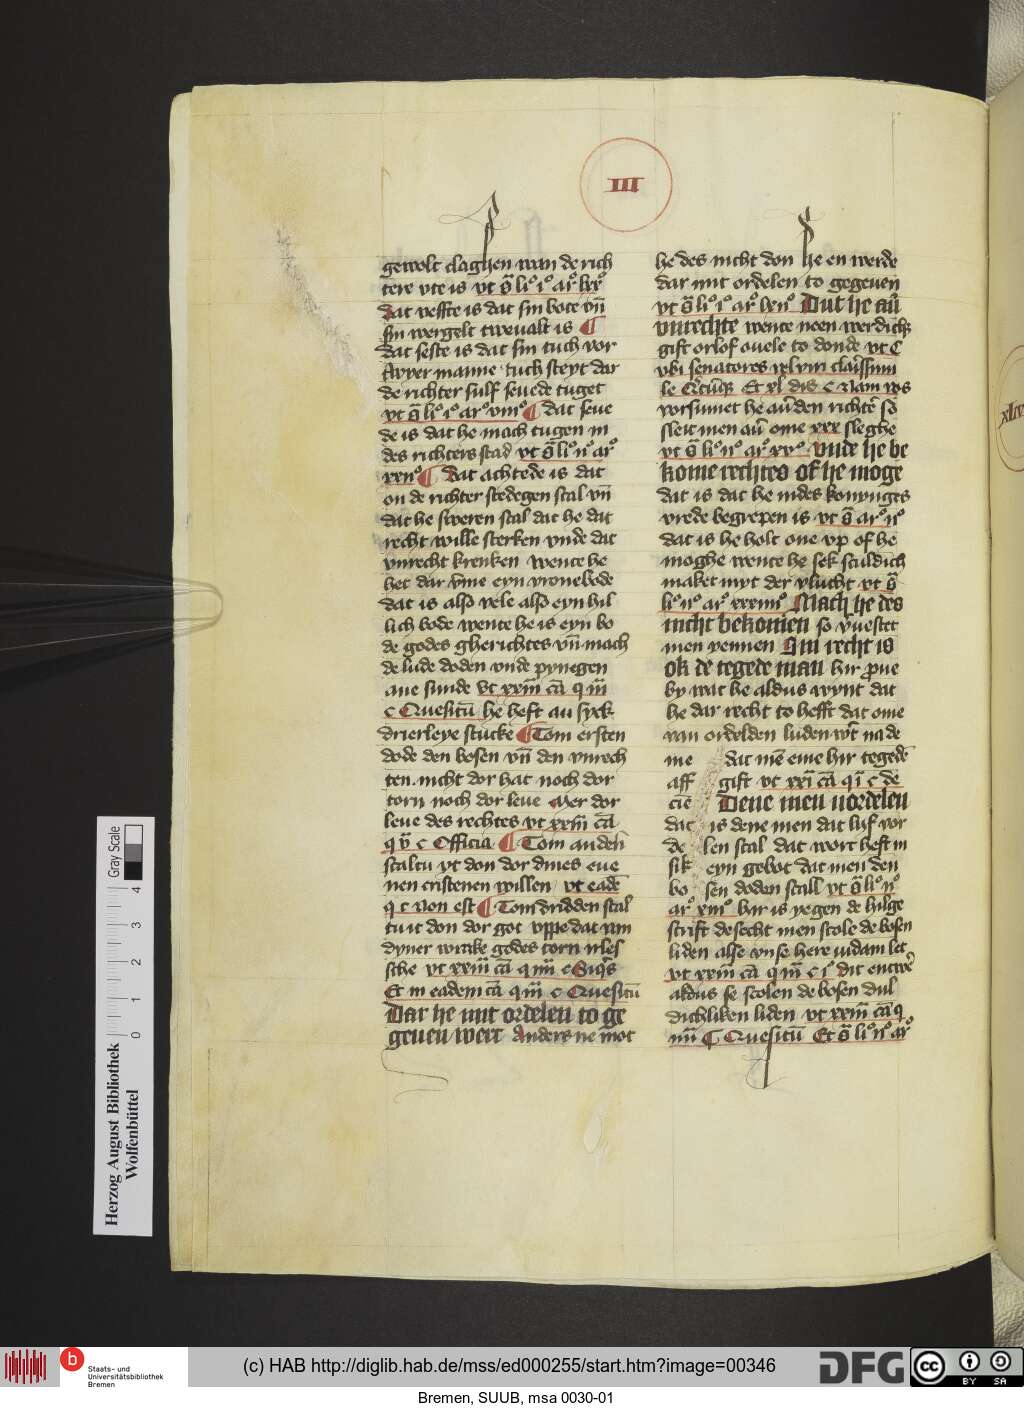 III
gewolt claghen wan de rich
tere vte is vt s̄ li° i° ar° lxx°
dat veffte is dat sin bote vn̄
sin wergelt twevalt is ¶
dat seste is dat sin tuch vor
man̄e tuch steyt dar
de richter sulf seuede tuget
vt s̄ li° i° ar° viii° ¶ dat seue
de is dat he mach tugen in
des richters stad vt s̄ li° ii° ar°
xxii° ¶ dat achtede is dat
on de richter stedegen scal vn̄
dat he sweren scal dat he dat
recht wille sterken vnde dat
vnrecht krenken wente he
het dar eyn vronebode
dat is also vele also eyn hil
lich bode wente he is eyn bo
de godes gherichtes vn̄ mach
de lude doden vnde pynegen
ane sunde vt xxiii cā q iii
c Quesitū he heft an syck
drierleye stucke ¶ Tom ersten
dode den bosen vn̄ den vnrech
ten nicht dor hat noch dor
torn noch dor leue Mer dor
leue des rechtes vt xxiii cā
q v c Officia ¶ Tom anden̄
scaltu yt don dor dines eue
nen cristenen willen vt eadē
q c non est ¶ Tom dridden scal
tu it don dor got vppe dat
dyner wrake godes torn
sche vt xxiii cā q iiii c Siq̄s
Et in eadem cā q iii c Quesitū
Dar he mit ordelen to ge
geuen wert Anders ne mot
he des nicht don he en werde
dar mit ordelen to gegeuen
vt s̄ li° i° ar° lxii° Dut he an̄
vnrechte wente neen werdich
gift orlof ouele to donde vt C
vbi senatores vl vm clarissimi
le Et xl dis c Nam
vorsumet he an̄ den richte so
sleit men an̄ ome xxx sleghe
vt s̄ li° ii° ar° xv° vnde he be
kome rechtes of he moge
dat is dat he indes konynges
vrede begrepen is vt s̄ ar° ii°
dat is he holt one vp of he
moghe wente he sek sculdich
maket myt der vlucht vt s̄
li° ii° ar° xxxiiii° Mach he des
nicht bekomen so vuestet
men yennen Sin recht is
ok de tegede man hir proue
by wat he aldus wynt dat
he dar recht to hefft dat ome
van ordelden luden wert na de
me dat mē eme hir tegedē
aff gift vt xxi cā q i c de
cie Dene men vordelen
dat is dene men dat lyf vor
de len scal dat wort heft in
sik eyn gebot dat men den
bo sen doden scall vt s̄ li° ii°
ar° xiii° hir is yegen de hilge
scrift de secht men scole de bosen
liden alse vnse here iudam let
vt xxiii cā q iiii c i° dit entwē
aldus se scolen de bosen dul
dichliken liden vt xxiii cā q
iiii C Quesitū Et s̄ li° ii° ar°
XLIV
Herzog August Bibliothek
Wolfenbüttel
0 1 2 3 4
Gray Scale
b
Staats- und
Universitätsbibliothek
Bremen
(c) HAB http://diglib.hab.de/mss/ed000255/start.htm?image=00346
DFG
cc
BY SA
Bremen, SUUB, msa 0030-01